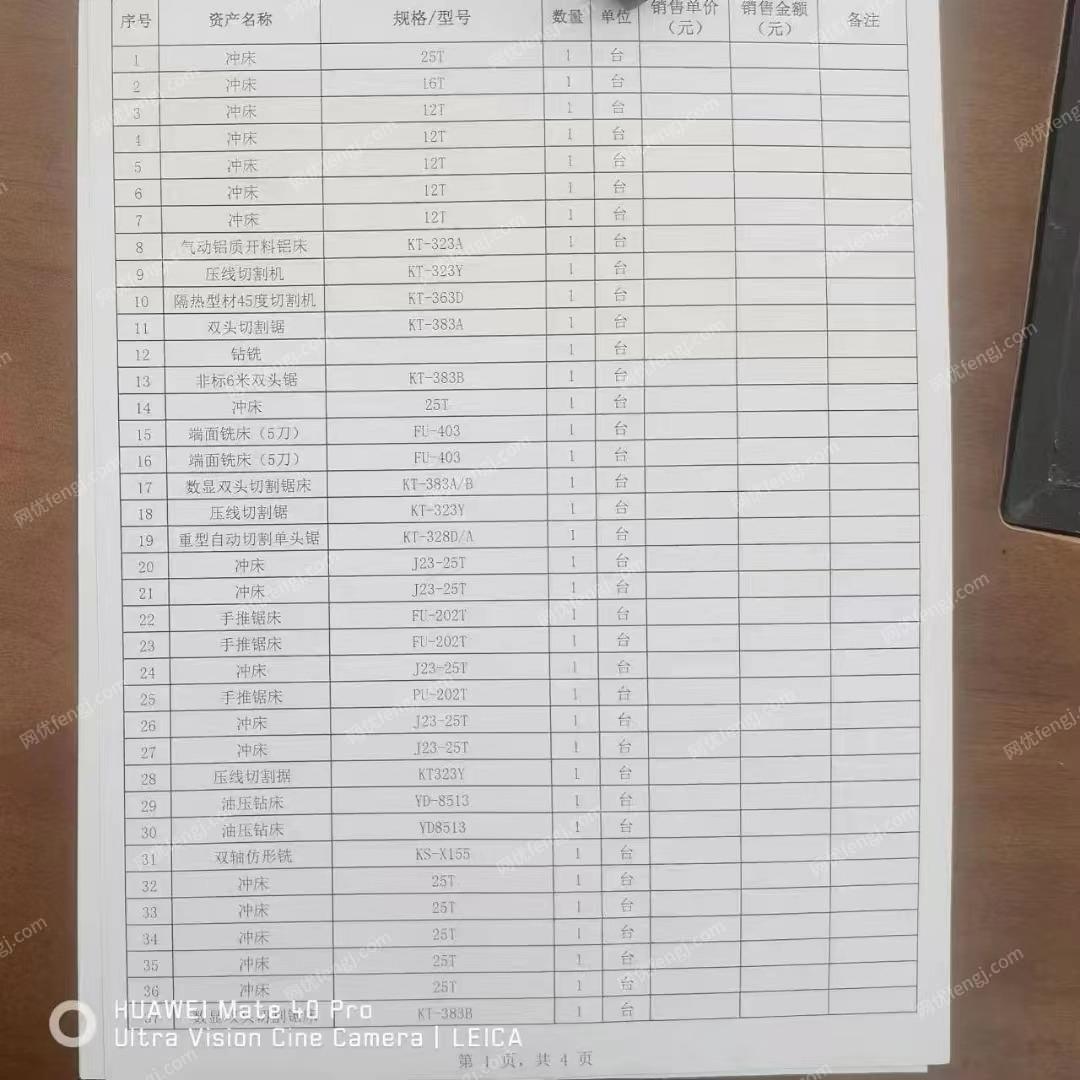 序号 资产名称 规格/型号 数量 单位 销售单价（元） 销售金额（元） 备注
1 冲床 25T 1 台
2 冲床 16T 1 台
3 冲床 12T 1 台
4 冲床 12T 1 台
5 冲床 12T 1 台
6 冲床 12T 1 台
7 冲床 12T 1 台
8 气动铝质开料锯床 KT-323A 1 台
9 压线切割机 KT-323Y 1 台
10 隔热型材45度切割机 KT-363D 1 台
11 双头切割锯 KT-383A 1 台
12 钻铣 1 台
13 非标6米双头锯 KT-383B 1 台
14 冲床 25T 1 台
15 端面铣床（5刀） FU-403 1 台
16 端面铣床（5刀） FU-403 1 台
17 数显双头切割锯床 KT-383A/B 1 台
18 压线切割锯 KT-323Y 1 台
19 重型自动切割单头锯 KT-328D/A 1 台
20 冲床 J23-25T 1 台
21 冲床 J23-25T 1 台
22 手推锯床 FU-202T 1 台
23 手推锯床 FU-202T 1 台
24 冲床 J23-25T 1 台
25 手推锯床 PU-202T 1 台
26 冲床 J23-25T 1 台
27 冲床 J23-25T 1 台
28 压线切割据 KT323Y 1 台
29 油压钻床 YD-8513 1 台
30 油压钻床 YD8513 1 台
31 双轴仿形铣 KS-X155 1 台
32 冲床 25T 1 台
33 冲床 25T 1 台
34 冲床 25T 1 台
35 冲床 25T 1 台
36 冲床 25T 1 台
37 数显双头切割锯床 KT-383B 1 台
HUAWEI Mate 40 Pro
Ultra Vision Cine Camera | LEICA
第 1 页，共 4 页
网优fengj.com